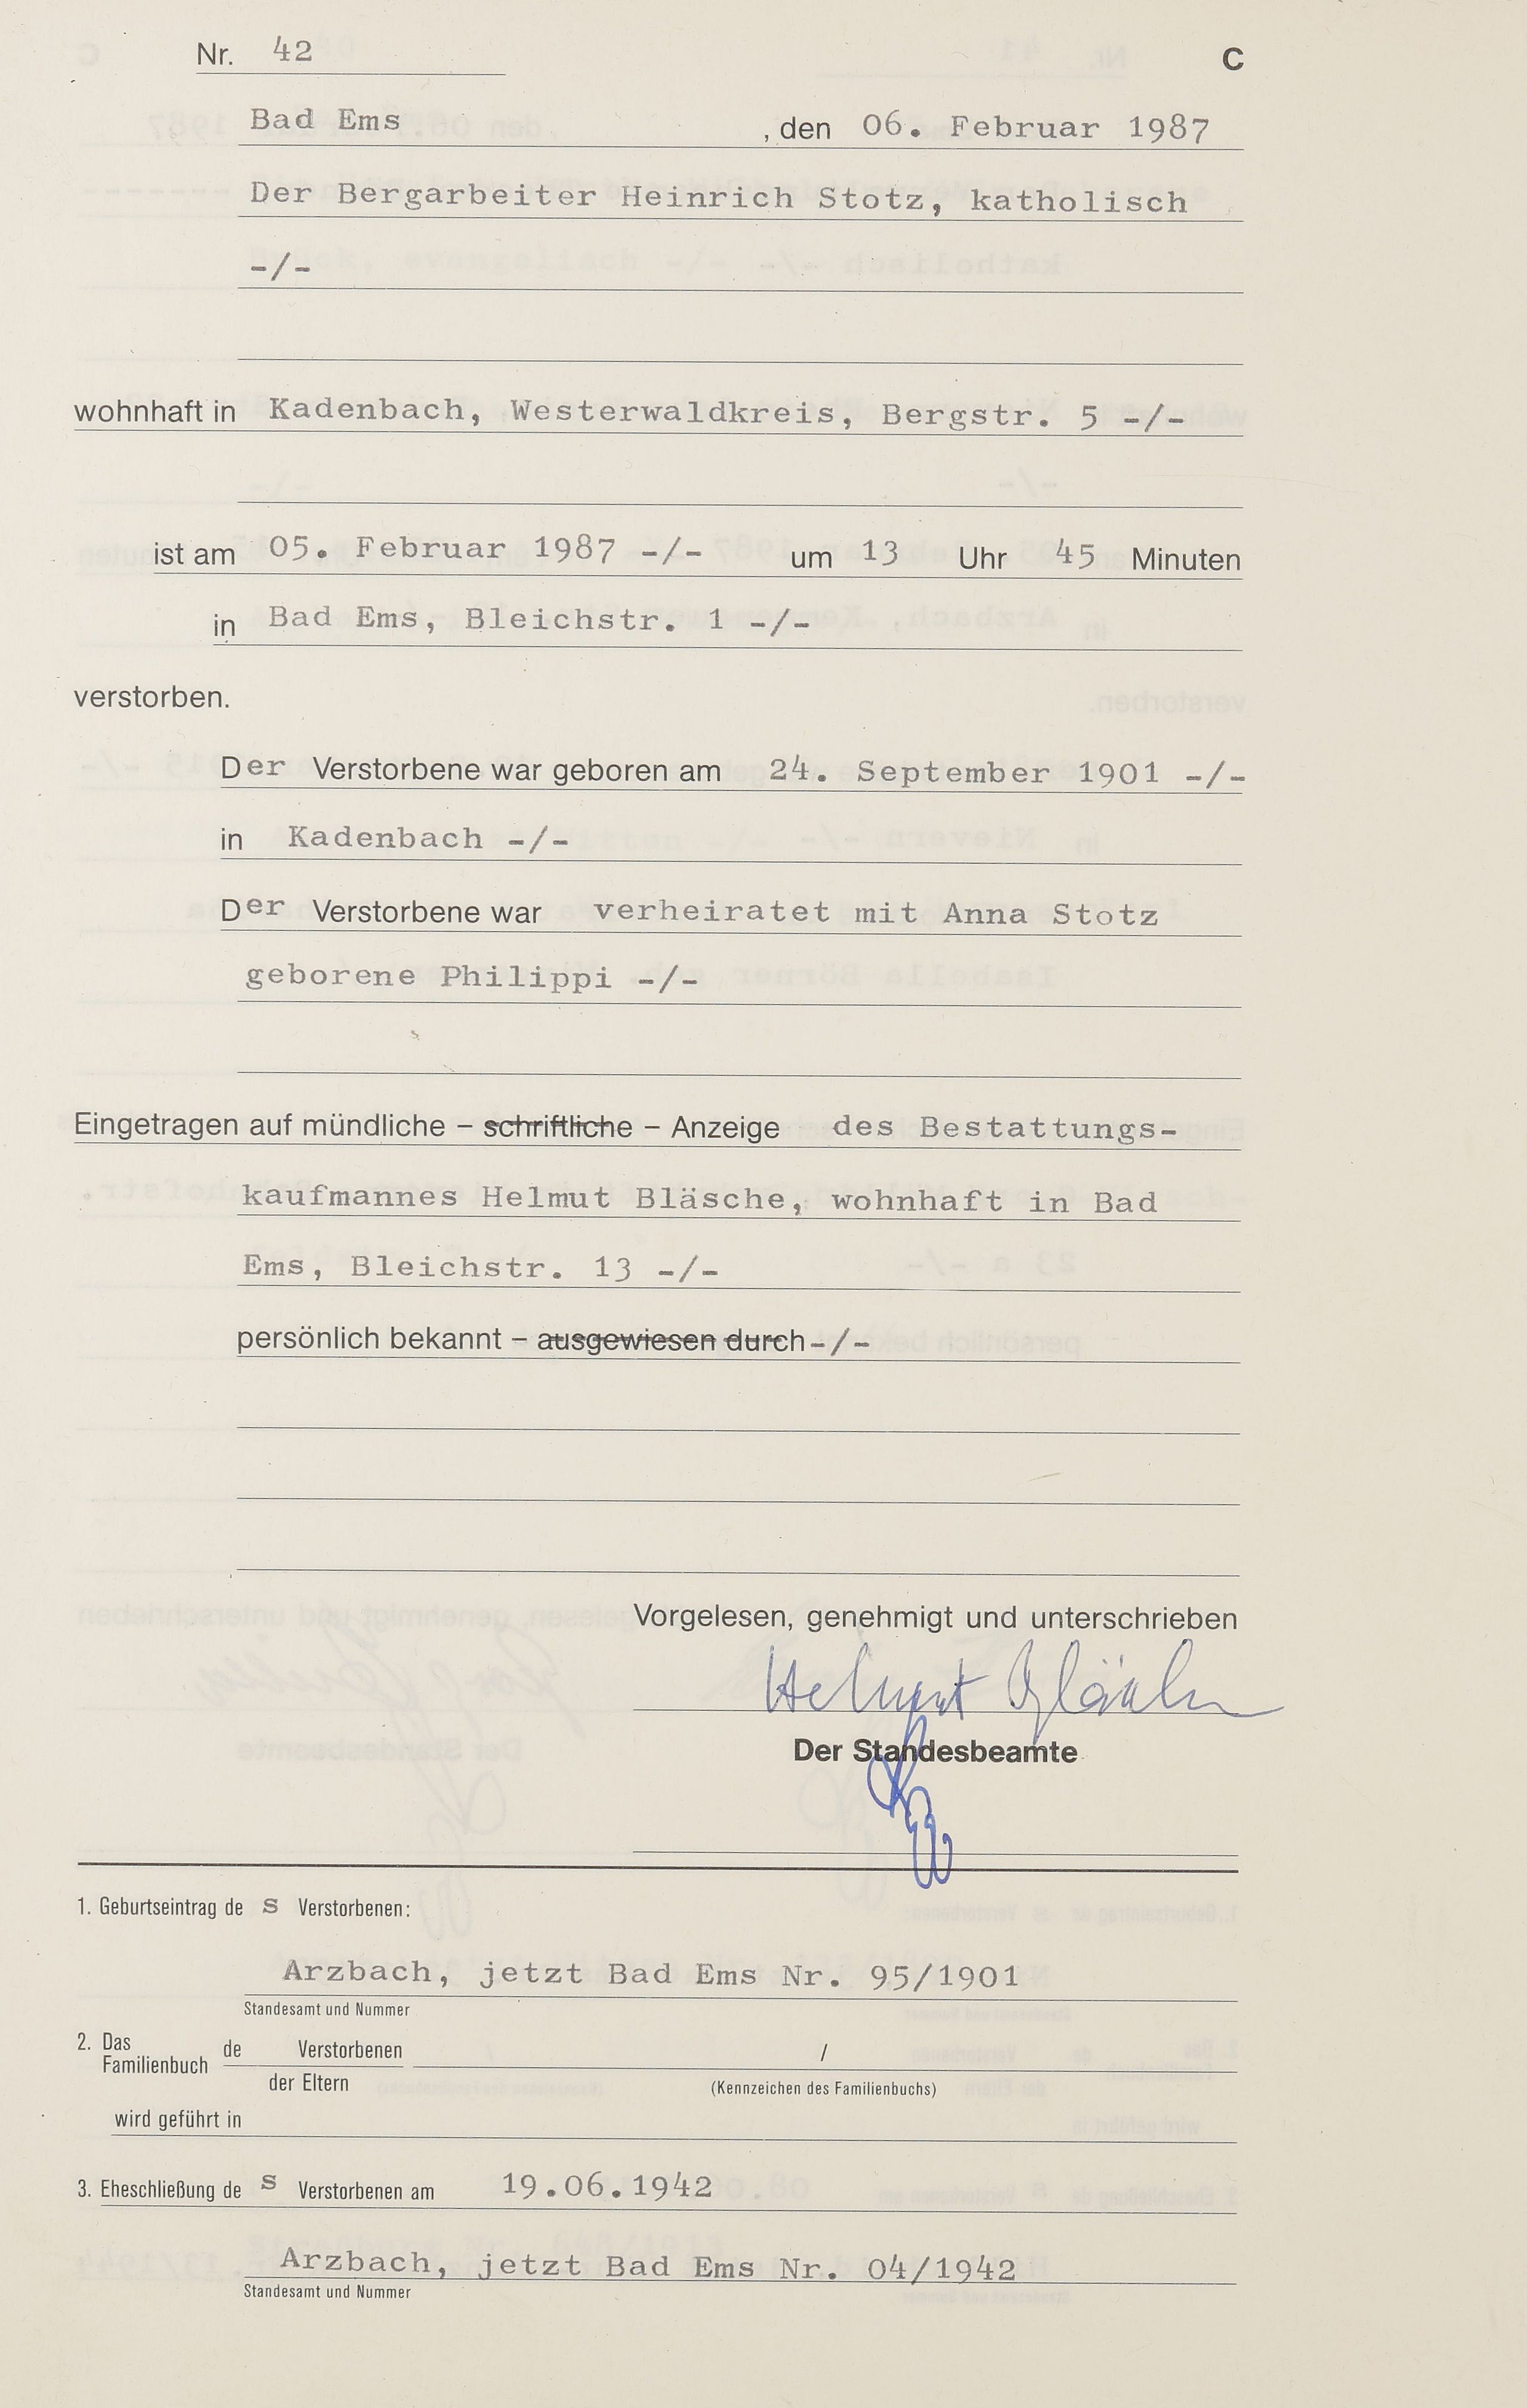 Nr. 42 C
Bad Ems , den 06. Februar 1987
Der Bergarbeiter Heinrich Stotz, katholisch
-/-
wohnhaft in Kadenbach, Westerwaldkreis, Bergstr. 5 -/-
ist am 05. Februar 1987 -/- um 13 Uhr 45 Minuten
in Bad Ems, Bleichstr. 1 -/-
verstorben.
Der Verstorbene war geboren am 24. September 1901 -/-
in Kadenbach -/-
Der Verstorbene war verheiratet mit Anna Stotz
geborene Philippi -/-
Eingetragen auf mündliche – schriftliche – Anzeige des Bestattungs-
kaufmannes Helmut Bläsche, wohnhaft in Bad
Ems, Bleichstr. 13 -/-
persönlich bekannt – ausgewiesen durch -/-
Vorgelesen, genehmigt und unterschrieben
Helmut Bläsche
Der Standesbeamte
1. Geburtseintrag de s Verstorbenen:
Arzbach, jetzt Bad Ems Nr. 95/1901
Standesamt und Nummer
2. Das Familienbuch de Verstorbenen /
der Eltern (Kennzeichen des Familienbuchs)
wird geführt in
3. Eheschließung de s Verstorbenen am 19.06.1942
Arzbach, jetzt Bad Ems Nr. 04/1942
Standesamt und Nummer